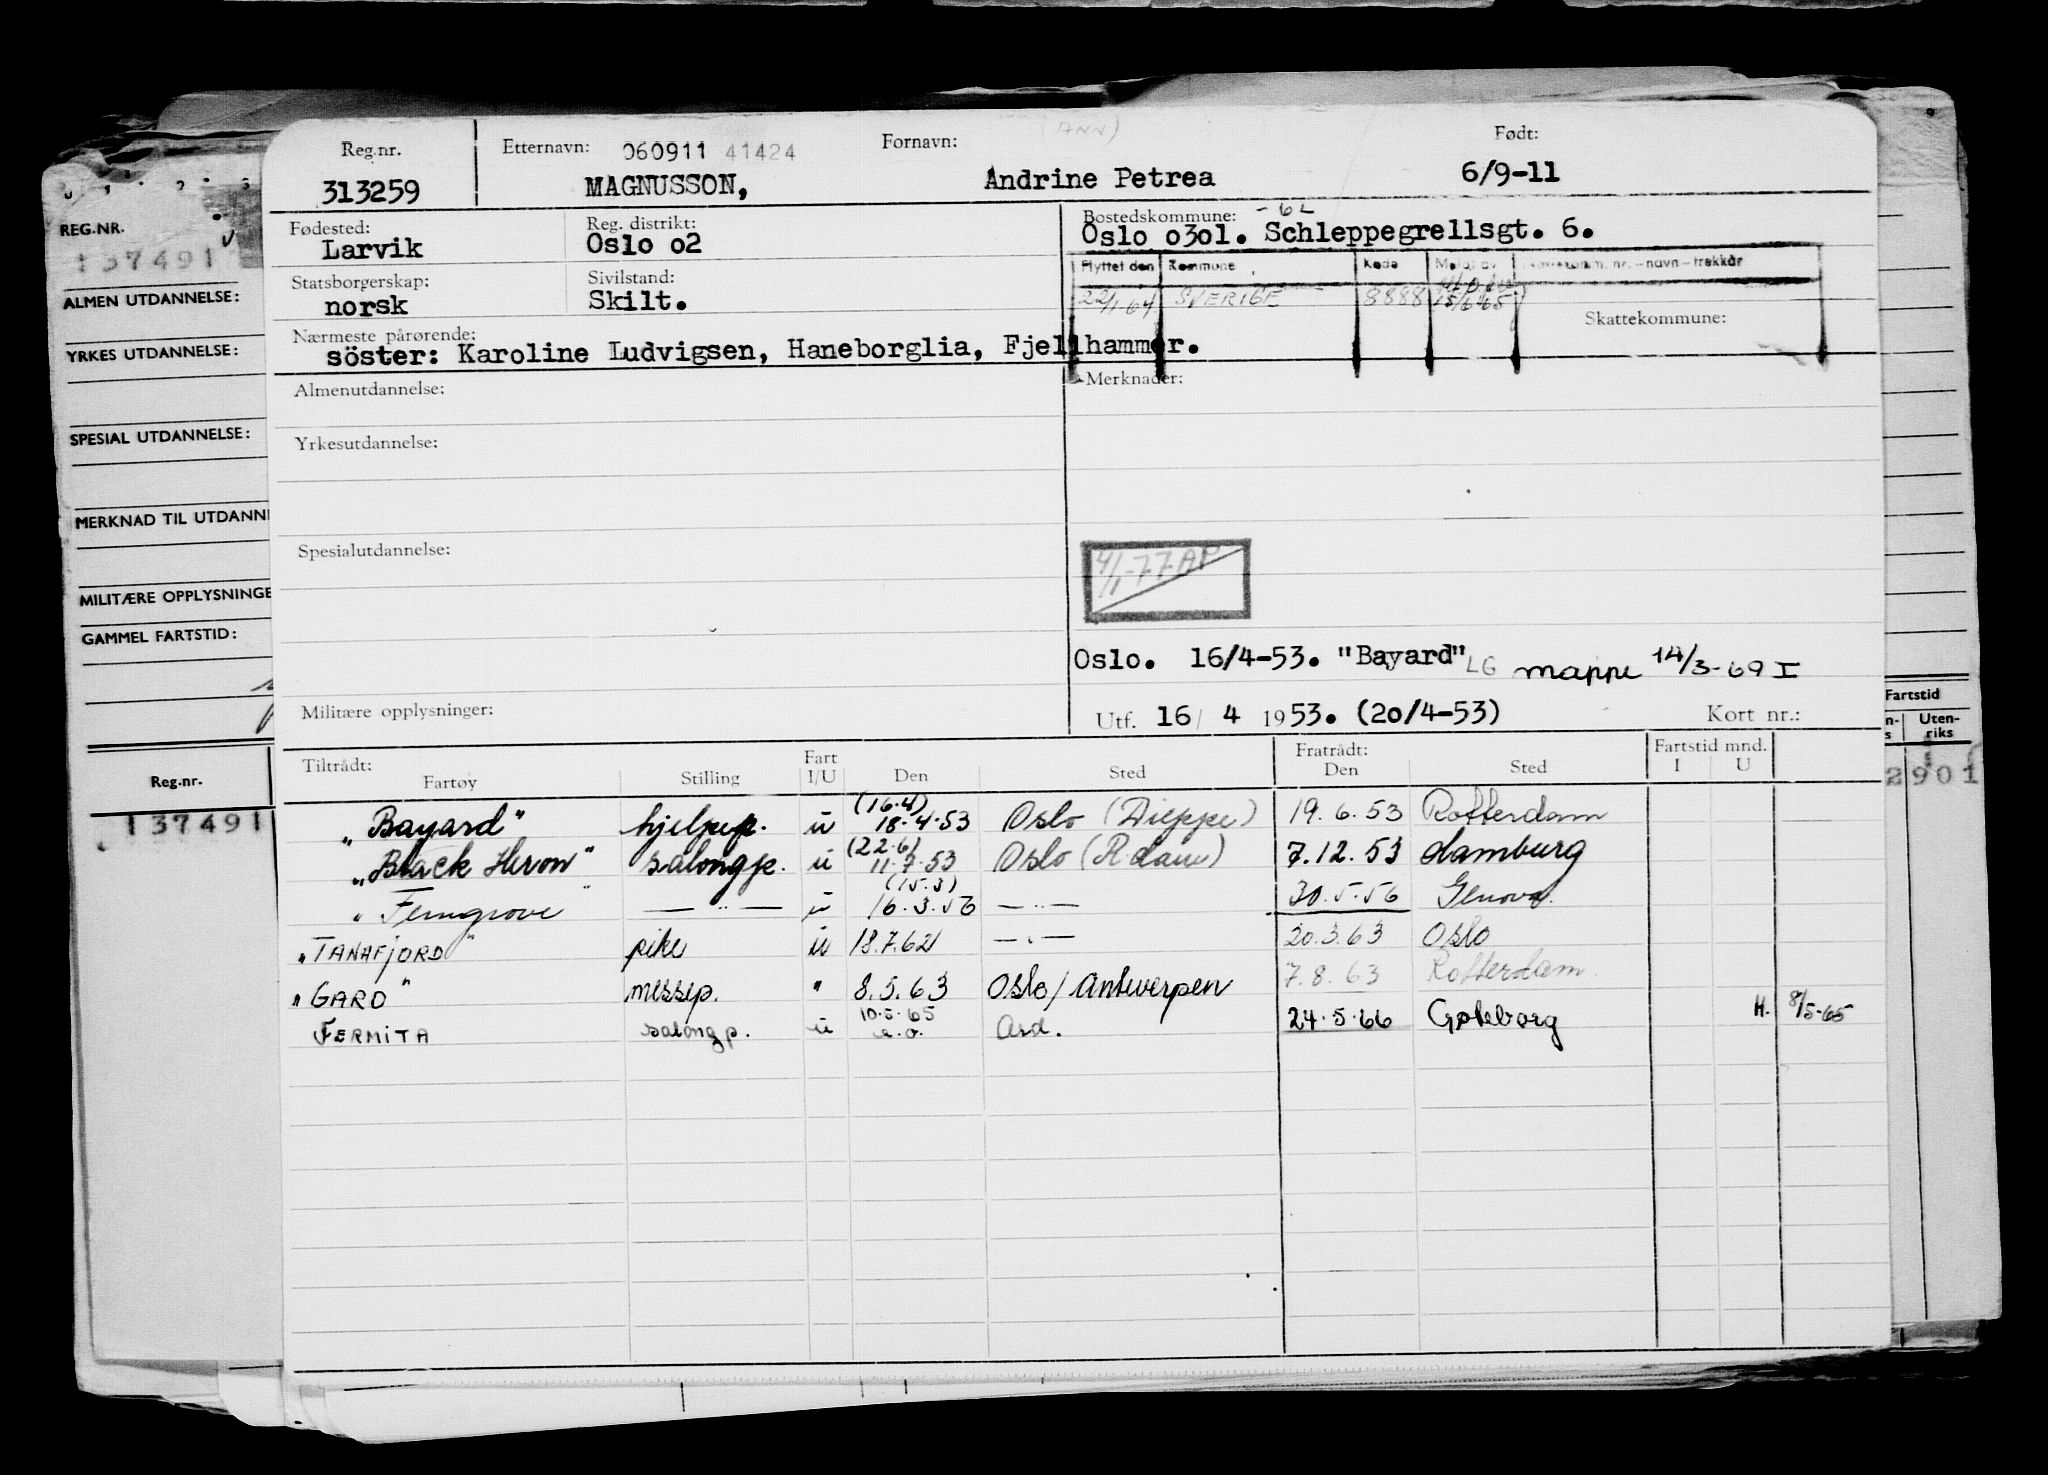 (ANN)
Reg.nr. Etternavn: 060911 41424 Fornavn: Født:
313259 MAGNUSSON, Andrine Petrea 6/9-11
Fødested: Reg. distrikt: Bostedskommune: -62
Larvik Oslo o2 Oslo o3ol. Schleppegrellsgt. 6.
Statsborgerskap: Sivilstand: Flyttet den Kommune Kode Meldt av
norsk Skilt. 22/1-64 SVERIGE 8888 15/6-65
Skattekommune:
Nærmeste pårørende:
söster: Karoline Ludvigsen, Haneborglia, Fjellhammer.
Almenutdannelse: Merknader:
Yrkesutdannelse:
Spesialutdannelse:
4/1-77 AP
Oslo. 16/4-53. "Bayard" LG mappe 14/3-69 I
Militære opplysninger: Utf. 16/ 4 1953. (20/4-53) Kort nr.:
Tiltrådt: Fart Fratrådt: Fartstid mnd.
Fartøy Stilling I/U Den Sted Den Sted I U
(16.4)
"Bayard" hjelpep. u 18.4.53 Oslo (Dieppe) 19.6.53 Rotterdam
(22.6)
"Black Heron" salongp. u 11.7.53 Oslo (R.dam) 7.12.53 Hamburg
(15.3)
"Ferngrove" — " — u 16.3.56 — " — 30.5.56 Genova.
"TANAFJORD" pike u 18.7.62 — " — 20.3.63 Oslo
"GARD" messep. " 8.5.63 Oslo/Antwerpen 7.8.63 Rotterdam.
10.5.65
FERMITA salongp. u a.o. Ard. 24.5.66 Gøteborg H. 8/5-65
REG.NR.
137491
ALMEN UTDANNELSE:
YRKES UTDANNELSE:
SPESIAL UTDANNELSE:
MERKNAD TIL UTDANN
MILITÆRE OPPLYSNINGE
GAMMEL FARTSTID:
Reg.nr.
137491
Fartstid
n-s Uten-riks
2901